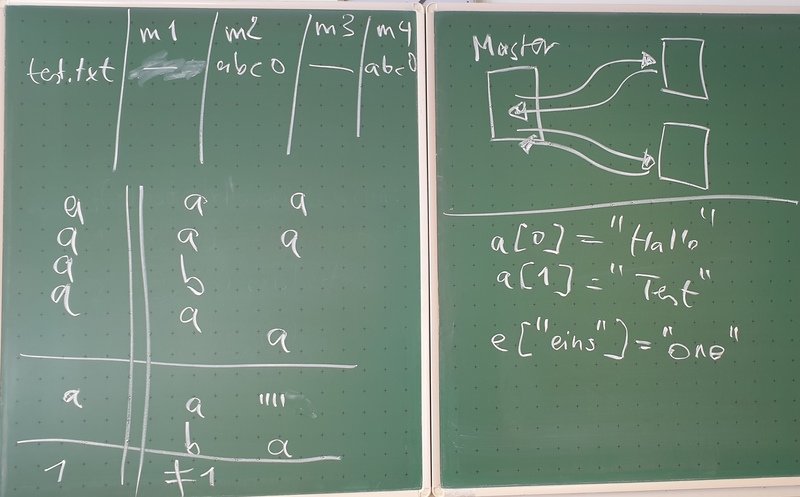 m1 m2 m3 m4
test.txt — abc0 — abc0
a a a
a a a
a b
a a
a
a a ""
b a
1 ≠1
Master
a[0] = "Hallo"
a[1] = "Test"
e["eins"] = "one"